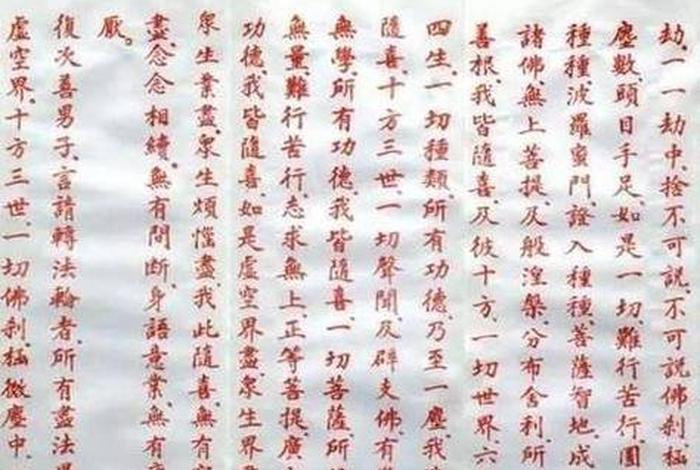 劫、一一劫中、捨不可說不可說佛刹、極
塵數頭目手足、如是一切難行苦行、圓
種種波羅蜜門、證入種種菩薩智地、成
諸佛無上菩提、及般涅槃、分布舍利、所
善根、我皆隨喜、及彼十方、一切世界、六
四生、一切種類、所有功德、乃至一塵、我
隨喜、十方三世、一切聲聞及辟支佛、有
無學、所有功德、我皆隨喜、一切菩薩、所
無量難行苦行、志求無上正等菩提、廣
功德、我皆隨喜、如是虛空界盡、衆生界
衆生業盡、衆生煩惱盡、我此隨喜、無有
盡、念念相續、無有間斷、身語意業、無有
厭。
復次善男子、言請轉法輪者、所有盡法
虛空界、十方三世、一切佛刹、極微塵中、